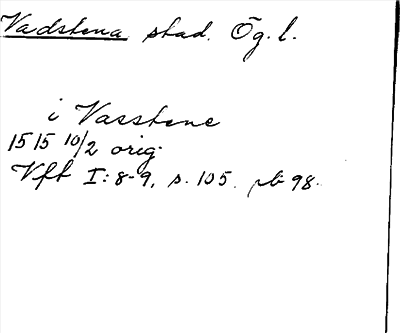 Vadstena stad. Ög. l.
i Vasstene
1515 10/2 orig.
Vft I: 8-9, s. 105. pb 98.